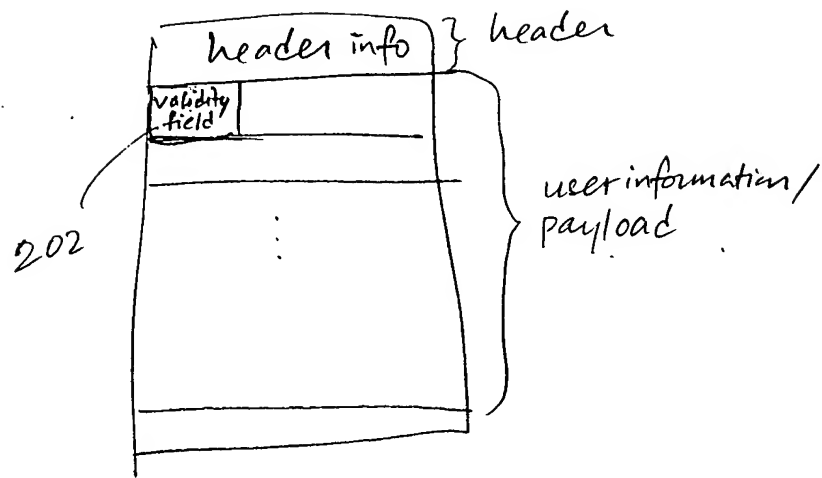 header info
header
validity
field
user information/
payload
202